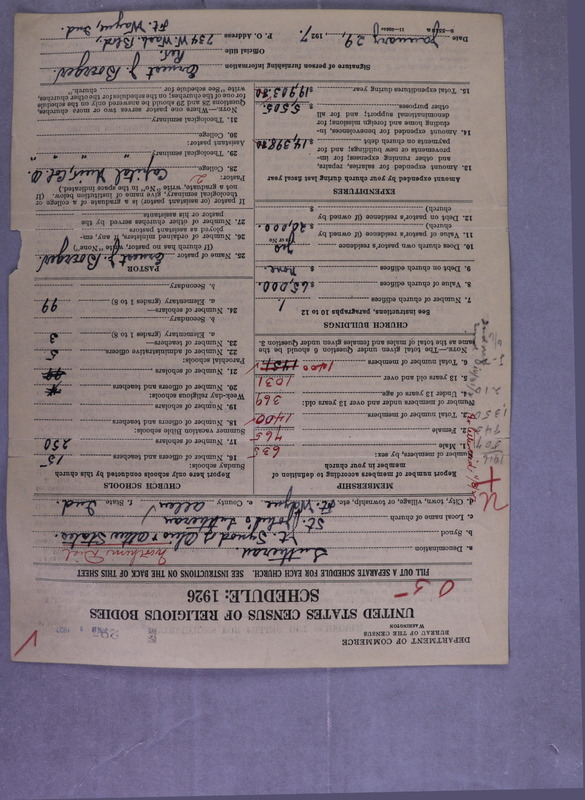 DEPARTMENT OF COMMERCE
BUREAU OF THE CENSUS
WASHINGTON
UNITED STATES CENSUS OF RELIGIOUS BODIES
SCHEDULE: 1926
0 5-
FILL OUT A SEPARATE SCHEDULE FOR EACH CHURCH. SEE INSTRUCTIONS ON THE BACK OF THIS SHEET
a. Denomination Lutheran
b. Synod Synod of Ohio & other States.
c. Local name of church St. John's Lutheran
d. City, town, village, or township, etc. Ft. Wayne e. County Allen f. State Ind.
MEMBERSHIP
Report number of members according to definition of member in your church
Number of members, by sex:
1. Male 635
2. Female 765
3. Total number of members 1400
Number of members under and over 13 years old:
4. Under 13 years of age 369
5. 13 years old and over 1031
6. Total number of members 1400
NOTE.—The total given under Question 6 should be the same as the total of males and females given under Question 3.
CHURCH BUILDINGS
See instructions, paragraphs 10 to 12
7. Number of church edifices 1.
8. Value of church edifices $ 65,000.
9. Debt on church edifices $ none.
10. Does church own pastor's residence yes
(Yes or No)
11. Value of pastor's residence (if owned by church) $ 20,000.
12. Debt on pastor's residence (if owned by church) $
EXPENDITURES
Amount expended by your church during last fiscal year
13. Amount expended for salaries, repairs, and other running expenses; for improvements or new buildings; and for payments on church debt $ 14,398.80
14. Amount expended for benevolences, including home and foreign missions; for denominational support; and for all other purposes $ 5,505.
15. Total expenditures during year $ 19,903.80
CHURCH SCHOOLS
Report here only schools conducted by this church
Sunday schools:
16. Number of officers and teachers 15
17. Number of scholars 250
Summer vacation Bible schools:
18. Number of officers and teachers
19. Number of scholars
Week-day religious schools:
20. Number of officers and teachers
21. Number of scholars
Parochial schools:
22. Number of administrative officers 5
23. Number of teachers—
a. Elementary (grades 1 to 8) 3
b. Secondary
24. Number of scholars—
a. Elementary (grades 1 to 8) 99
b. Secondary
PASTOR
25. Name of pastor Ernest J. Boerger.
(If church has no pastor, write "None")
26. Number of ordained ministers, if any, employed as assistant pastors
27. Number of other churches served by the pastor or his assistants
If pastor (or assistant pastor) is a graduate of a college or theological seminary, give name of institution below. (If not a graduate, write "No" in the space indicated.)
Pastor:
28. College Capital Univ., Col. O.
29. Theological seminary " " "
Assistant pastor:
30. College
31. Theological seminary
NOTE.—Where a pastor serves two or more churches, Questions 25 and 29 should be answered only on the schedule for one of the churches; on the schedules for the other churches, write "See schedule for church."
Signature of person furnishing information Ernest J. Boerger
Official title Rev.
P. O. Address 734 W. Wash. Blvd.,
Ft. Wayne, Ind.
Date January 29, 1927.